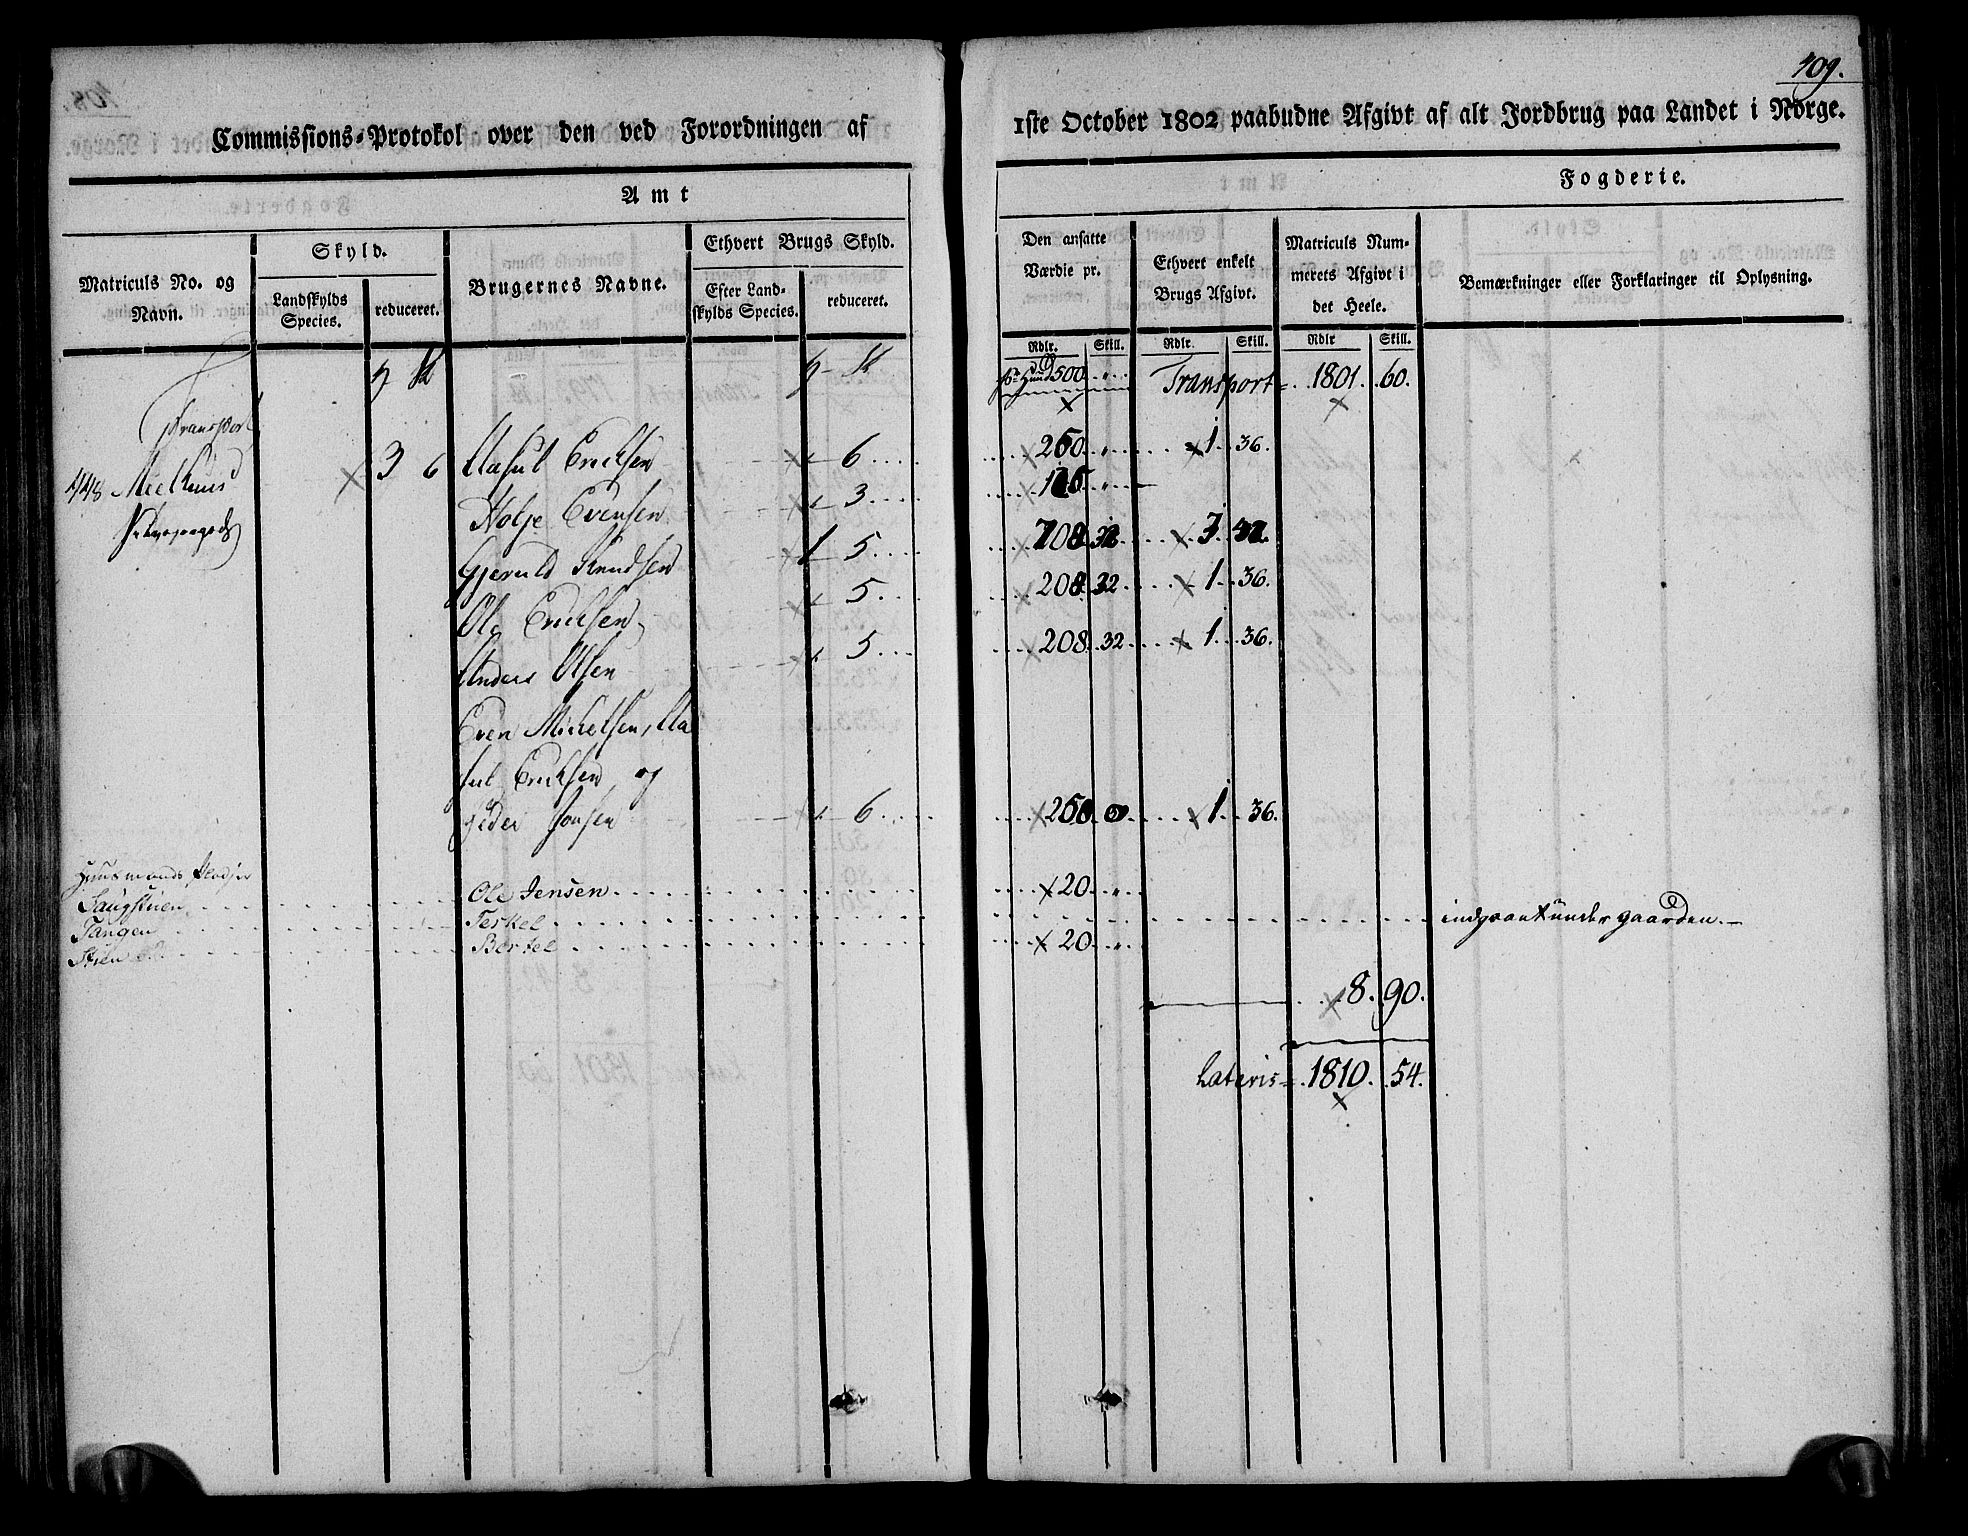 109.
Commissions-Protokol over den ved Forordningen af 1ste October 1802 paabudne Afgivt af alt Jordbrug paa Landet i Norge.
Amt
Fogderie.
Matriculs No. og Navn.
Skyld.
Landskylds Species.
reduceret.
Brugernes Navne.
Ethvert Brugs Skyld.
Efter Landskylds Species.
reduceret.
Den ansatte Værdie pr.
Rdlr. Skill.
Ethvert enkelt Brugs Afgivt.
Rdlr. Skill.
Matriculs Nummerets Afgivt i det Heele.
Rdlr Skill.
Bemærkninger eller Forklaringer til Oplysning.
500 Transport 1801. 60.
Transport
448 Mielhuus 3 6 Aasul Erichsen 6 250 1 36.
Holje Evensen 3
Gjeruld Knudsen 1 5 32
Ole Erichsen 5 208 32 1 36.
Anders Olsen 5 208 32 1 36.
Even Michelsen, Aa
sul Erichsen og
Peder Jonsen 6 250 0 1 36.
Huusmands Pladser
Laugstuen Ole Jensen 20
Tangen Terkel under gaarden.
Stuen Berkel 20
8. 90.
Lateris 1810. 54.